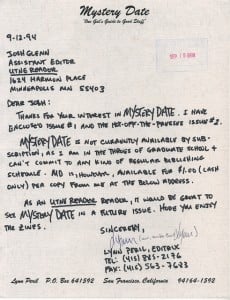 Mystery Date
"One Gal's Guide to Good Stuff"
9-12-94
JOSH GLENN
ASSISTANT EDITOR
UTNE READER
1624 HARMON PLACE
MINNEAPOLIS MN 55403
SEP 1994
DEAR JOSH:
THANKS FOR YOUR INTEREST IN MYSTERY DATE. I HAVE
ENCLOSED ISSUE #1 AND THE HOT-OFF-THE-PRESSES ISSUE #2.
MYSTERY DATE IS NOT CURRENTLY AVAILABLE BY SUB-
SCRIPTION, AS I AM IN THE THROES OF GRADUATE SCHOOL &
CAN'T COMMIT TO ANY KIND OF REGULAR PUBLISHING
SCHEDULE. MD IS, HOWEVER, AVAILABLE FOR $1.00 (CASH
ONLY) PER COPY FROM ME AT THE BELOW ADDRESS.
AS AN UTNE READER READER, IT WOULD BE GREAT TO
SEE MYSTERY DATE IN A FUTURE ISSUE. HOPE YOU ENJOY
THE ZINES.
SINCERELY,
LYNN PERIL, EDITRIX
TEL: (415)
FAX: (415)
Lynn Peril P.O. Box 641592 San Francisco, California 94164-1592